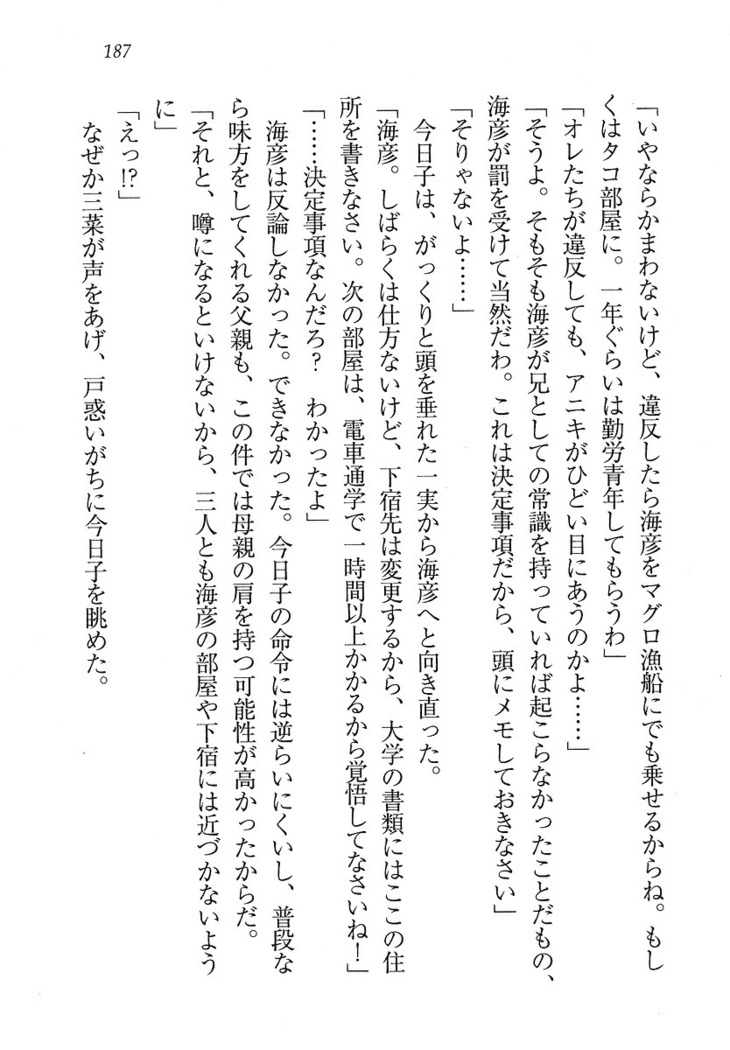 187
「いやならかまわないけど、違反したら海彦をマグロ漁船にでも乗せるからね。もし
くはタコ部屋に。一年ぐらいは勤労青年してもらうわ」
「オレたちが違反しても、アニキがひどい目にあうのかよ……」
「そうよ。そもそも海彦が兄としての常識を持っていれば起こらなかったことだもの、
海彦が罰を受けて当然だわ。これは決定事項だから、頭にメモしておきなさい」
「そりゃないよ……」
今日子は、がっくりと頭を垂れた一実から海彦へと向き直った。
「海彦。しばらくは仕方ないけど、下宿先は変更するから、大学の書類にはここの住
所を書きなさい。次の部屋は、電車通学で一時間以上かかるから覚悟してなさいね！」
「……決定事項なんだろ？　わかったよ」
海彦は反論しなかった。できなかった。今日子の命令には逆らいにくいし、普段な
ら味方をしてくれる父親も、この件では母親の肩を持つ可能性が高かったからだ。
「それと、噂になるといけないから、三人とも海彦の部屋や下宿には近づかないよう
に」
「えっ!?」
なぜか三菜が声をあげ、戸惑いがちに今日子を眺めた。